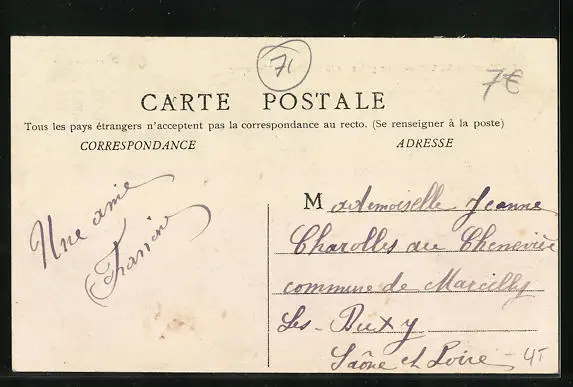 71
7€
CARTE POSTALE
Tous les pays étrangers n'acceptent pas la correspondance au recto. (Se renseigner à la poste)
CORRESPONDANCE
ADRESSE
Une amie
Francine
Mademoiselle Jeanne
Charolles au
commune de Marcilly
Les-Buxy
Saône et Loire